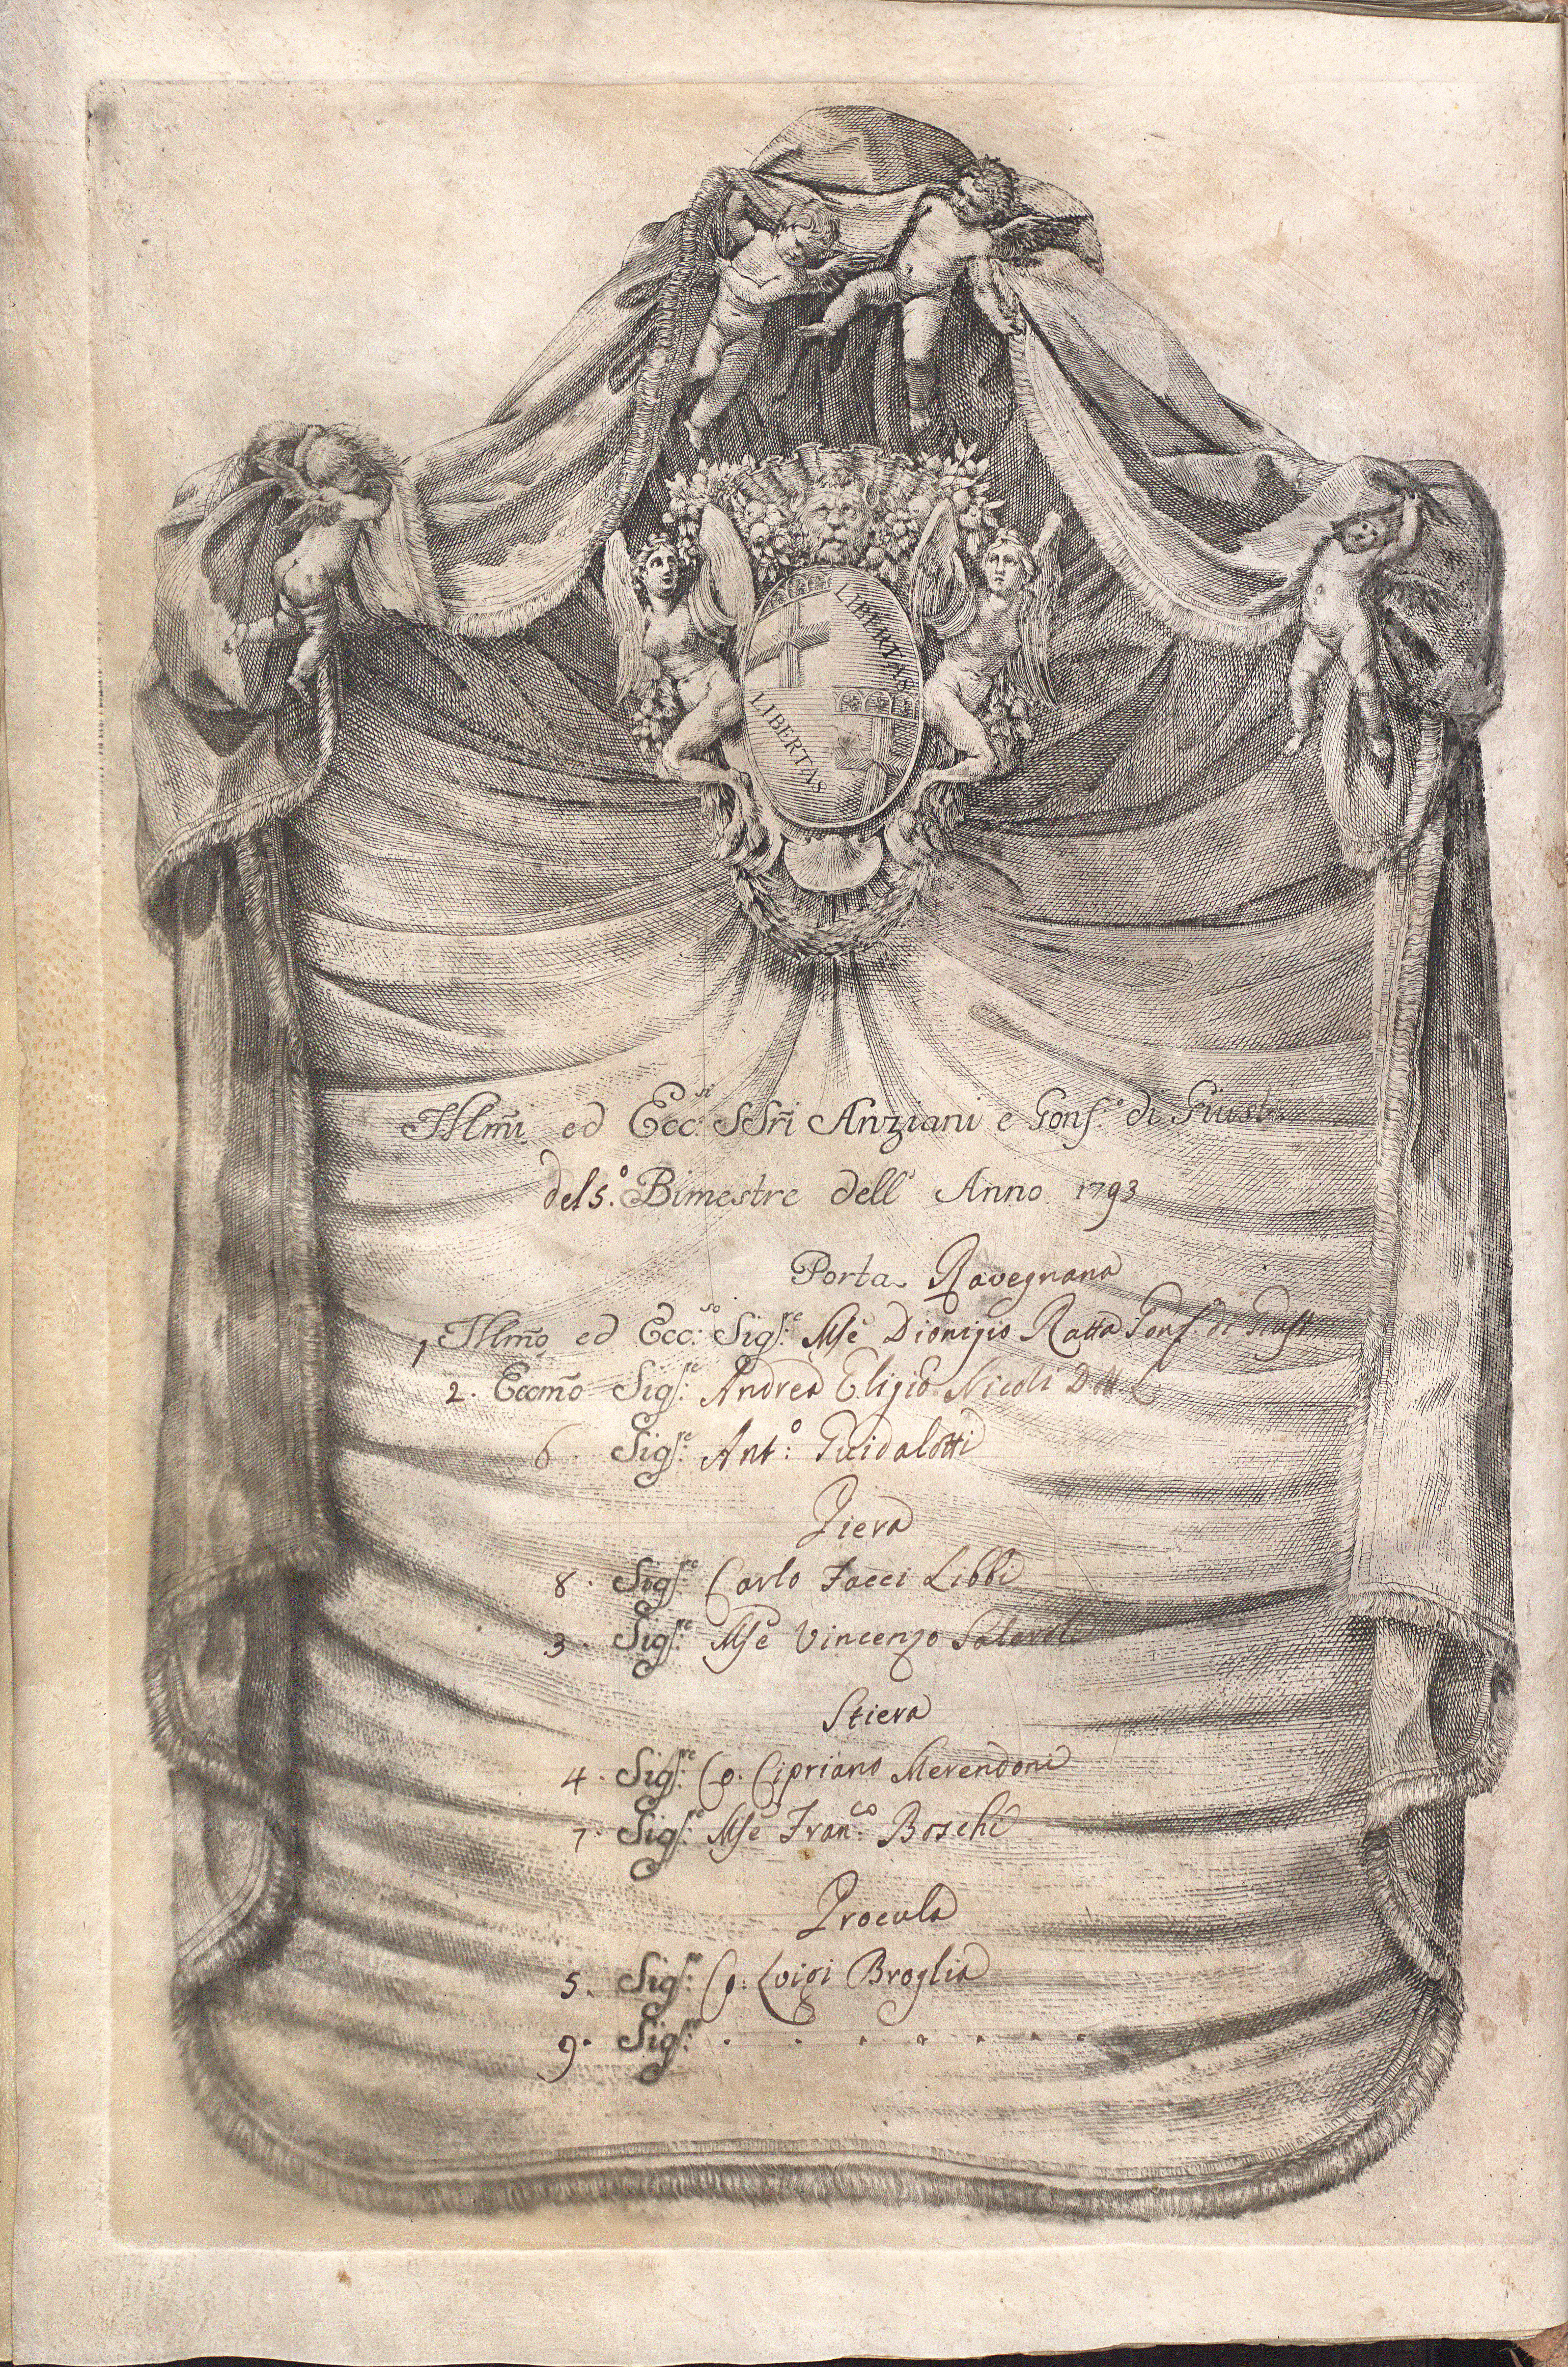 LIBERTAS
LIBERTAS
Illmi ed Ecc.si SSri Anziani e Gonf.o di Giust.
del 5.o Bimestre dell' Anno 1793
Porta Ravegnana
1 Illmo ed Ecc.so Sig.re Mse Dionigio Ratta Gonf. di Giust
2. Eccmo Sig.re Andrea Eligio Nicoli Dott. L
6. Sig.re Ant.o Guidalotti
Piera
8. Sig.re Carlo Facci Libbi
3. Sig.re Mse Vincenzo
Stiera
4. Sig.re Co. Cipriano Merendoni
7. Sig.re Mse Fran.co Boschi
Procula
5. Sig.re Co. Luigi Broglia
9. Sig.re . . . . . . . .